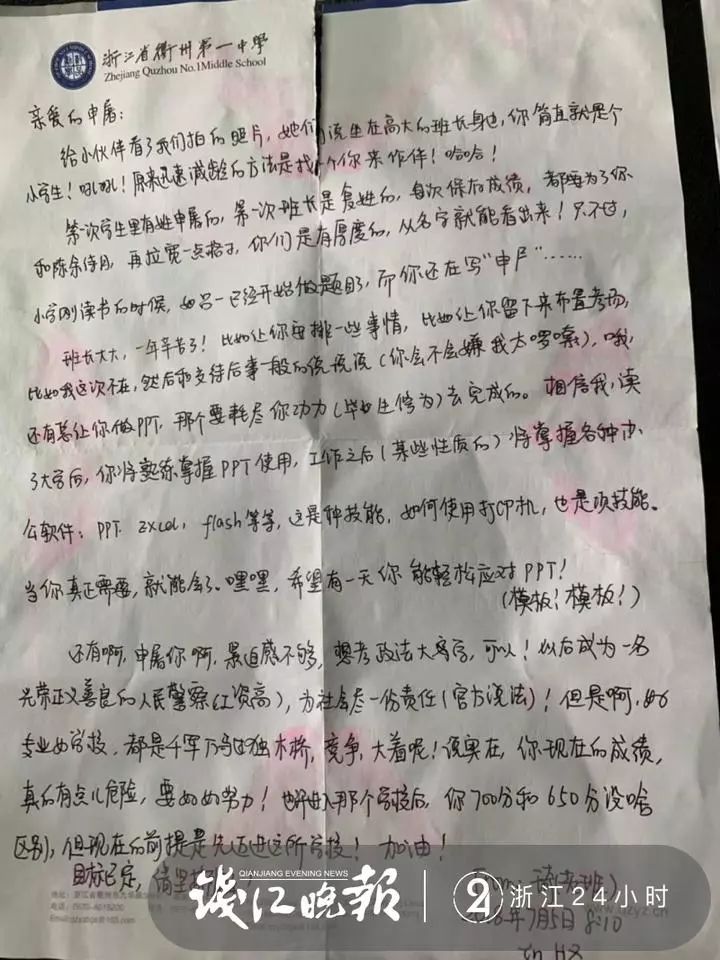 浙江省衢州第一中学
Zhejiang Quzhou No.1 Middle School
亲爱的申屠：
给小伙伴看了我们拍的照片，她们说坐在高大的班长身边，你简直就是个
小学生！吼吼！原来迅速减龄的方法是找个你来作伴！哈哈！
第一次学生里有姓申屠的，第一次班长是复姓的，每次保存成绩，都要为了你
和陈余诗月，再拉宽一点格子，你们是有厚度的，从名字就能看出来！只不过，
小学刚读书的时候，如吕一已经开始做题目了，而你还在写“申尸”……
班长大大，一年辛苦了！比如让你安排一些事情，比如让你留下来布置考场，
比如我这次不在，然后和交待后事一般的说说说（你会不会嫌我太啰嗦），哦，
还有总让你做PPT，那个要耗尽你功力（毕生修为）去完成的。相信我，读
了大学后，你将熟练掌握PPT使用，工作之后（某些性质的）将掌握各种办
公软件：PPT. excel, flash等等，这是种技能，如何使用打印机，也是项技能。
当你真正需要，就能会了。嘿嘿，希望有一天你能轻松应对PPT！
（模板！模板！）
还有啊，申屠你啊，紧迫感不够，想考政法大学，可以！以后成为一名
光荣正义善良的人民警察（工资高），为社会尽一份责任（官方说法）！但是啊，好
专业好学校，都是千军万马过独木桥，竞争，大着呢！说实在，你现在的成绩，
真的有点儿危险，要好好努力！也许进入那个学校后，你700分和650分没啥
区别，但现在的前提是先迈进这所学校！加油！
目标已定，
From:
7月5日 8:10
钱江晚报
QIANJIANG EVENING NEWS
浙江24小时